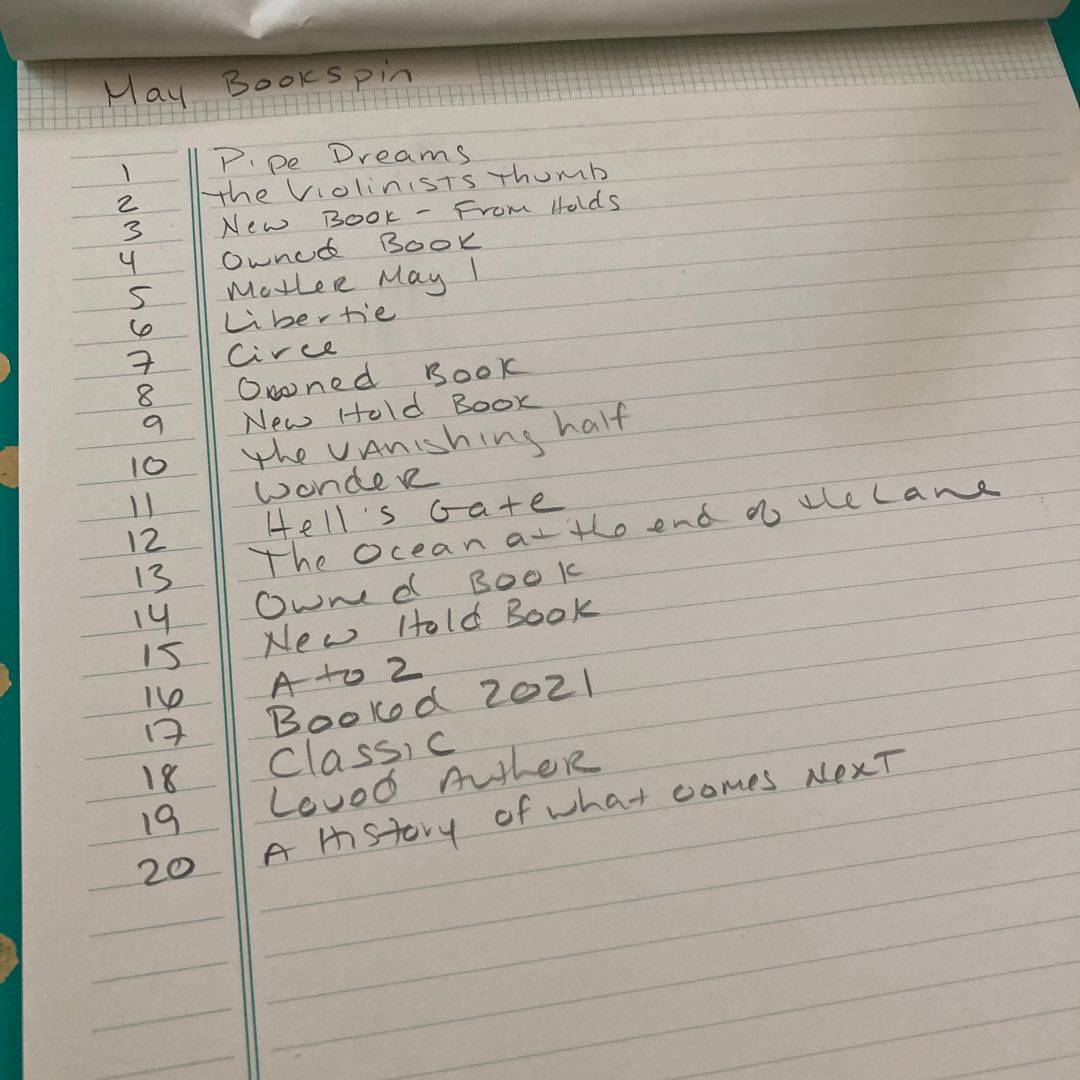 May Bookspin
1 Pipe Dreams
2 The Violinists Thumb
3 New Book - From Holds
4 Owned Book
5 Mother May I
6 Libertie
7 Circe
8 Owned Book
9 New Hold Book
10 The Vanishing half
11 Wonder
12 Hell's Gate
13 The Ocean at the end of the Lane
14 Owned Book
15 New Hold Book
16 A to Z
17 Booked 2021
18 Classic
19 Loved Auther
20 A History of what comes Next